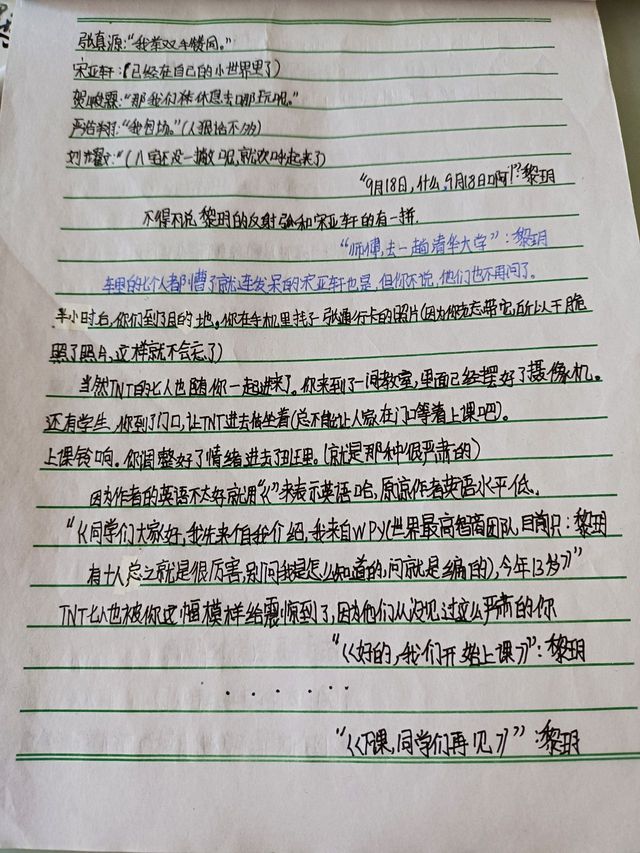 张真源:“我举双手赞同。”
宋亚轩:(已经在自己的小世界里了)
贺峻霖:“那我们待休息去哪玩呢。”
严浩翔:“我包场。”(人狠话不多)
刘耀文:“(八字还没一撇呢,就欢呼起来了)
“9月18日,什么,9月18日啊!”:黎玥
不得不说黎玥的反射弧和宋亚轩的有一拼.
“师傅,去一趟清华大学”:黎玥
车里的七个人都懵了就连发呆的宋亚轩也是,但你不说,他们也不再问了。
半小时后,你们到了目的地。你在手机里找了张通行卡的照片(因为你先忘带它,所以干脆
照了照片,这样就不会忘了)
当然TNT的七人也随你一起进来了。你来到了一间教室,里面已经摆好了摄像机。
还有学生,你到了门口,让TNT进去坐着(总不能让人家在门口等着上课吧)。
上课铃响。你调整好了情绪进去了班里。(就是那种很严肃的)
因为作者的英语不太好就用“《》”来表示英语哈,原谅作者英语水平低。
“《同学们大家好,我先来个自我介绍,我来自WPY(世界最高智商团队目前只:黎玥
有十人总之就是很厉害,别问我是怎么知道的,问就是编的),今年13岁》”
TNT七人也被你这幅模样给震惊到了,因为他们从没见过这么严肃的你
“《好的,我们开始上课》”:黎玥
.......
“《下课,同学们再见》”:黎玥